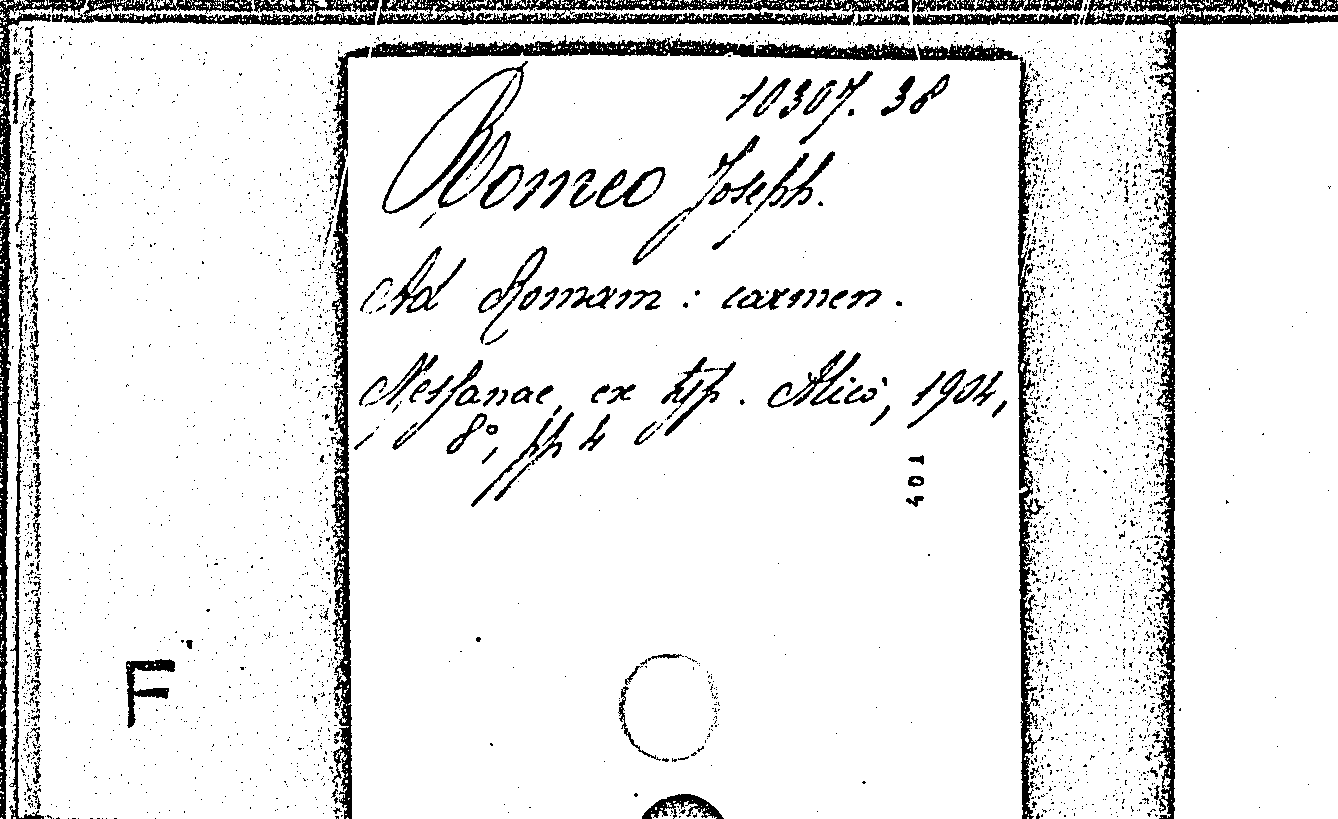 10307. 38
Romeo Joseph.
Ad Romam : carmen.
Messanae, ex typ. Alicò, 1904,
8°, pp 4
401
F